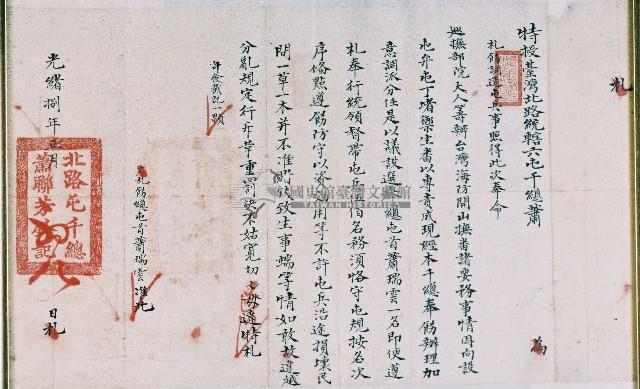 札
特授臺灣北路統轄六屯千總蕭 為
札飭 遴選屯兵事照得此次奉命
巡撫部院大人籌辦台灣海防開山撫番諸要務事情因向設
屯弁屯丁者熟生番以專責成現經本千總奉飭辦理加
意調派分任是以議設選 總屯首蕭瑞雲一名即便遵
札奉行統領督帶屯 伍佰名務須恪守屯規按名次
序條點遵飭防守以資備用等不許屯兵沿途損壞民
間一草一木并不准 致生事端等情如敢故違越
分亂規定行斥革重罰 不姑寬切切毋違特札
計發戳記一顆
札飭總屯首蕭瑞雲准此
光緒捌年正月 日札
北路屯千總
蕭聯芳 記
國史館臺灣文獻館
TAIWAN HISTORICA